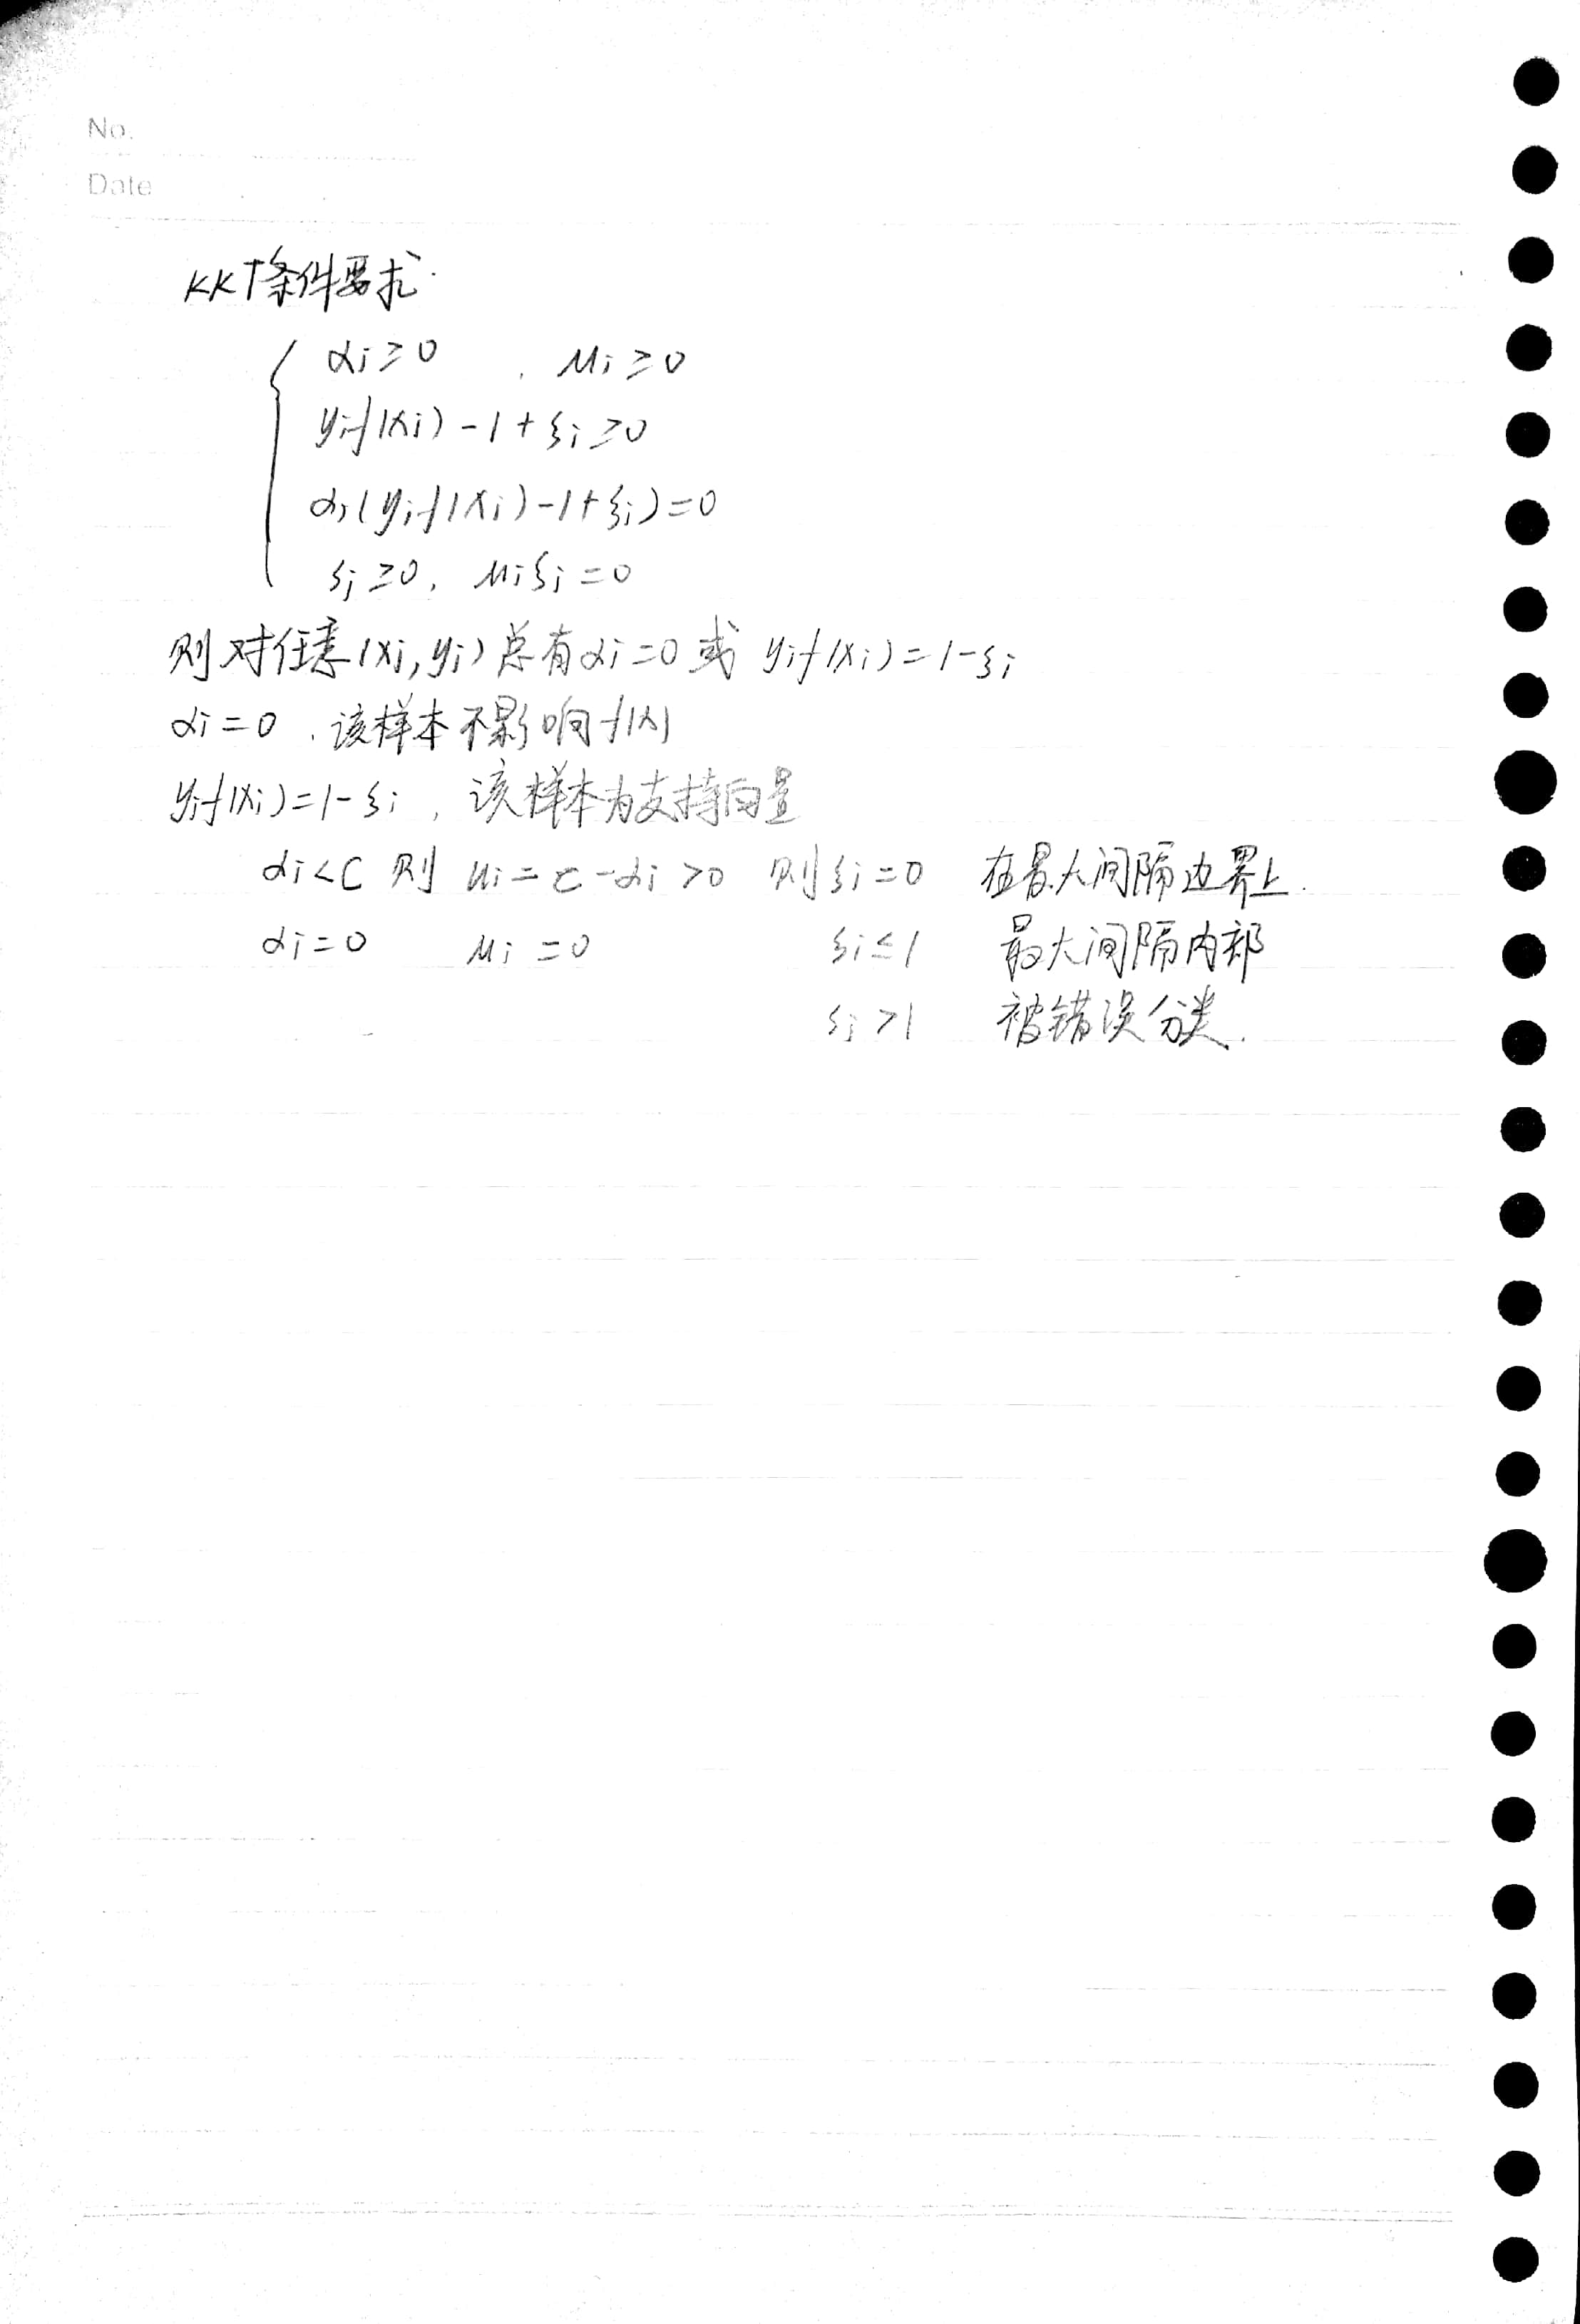 No.
Date
KKT条件要求
αi≥0 , μi≥0
yif(xi)-1+ξi≥0
αi(yif(xi)-1+ξi)=0
ξi≥0, μiξi=0
则对任意(xi,yi)总有αi=0或 yif(xi)=1-ξi
αi=0 , 该样本不影响f(x)
yif(xi)=1-ξi , 该样本为支持向量
αi<C 则 μi=C-αi>0 则ξi=0 在最大间隔边界上.
αi=0 μi=0 ξi≤1 最大间隔内部
ξi>1 被错误分类.